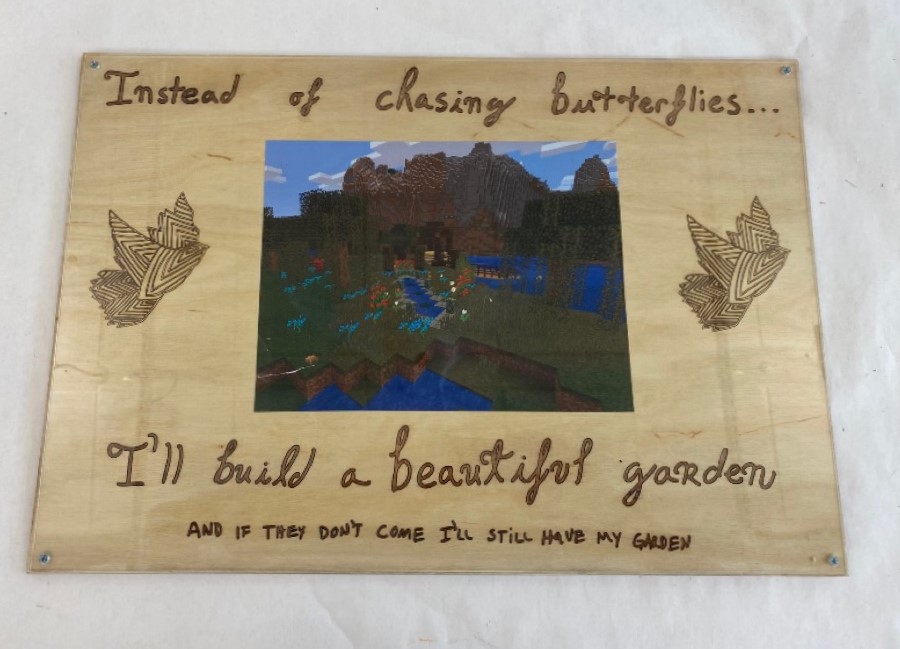 Instead of chasing butterflies...
I'll build a beautiful garden
AND IF THEY DON'T COME I'LL STILL HAVE MY GARDEN